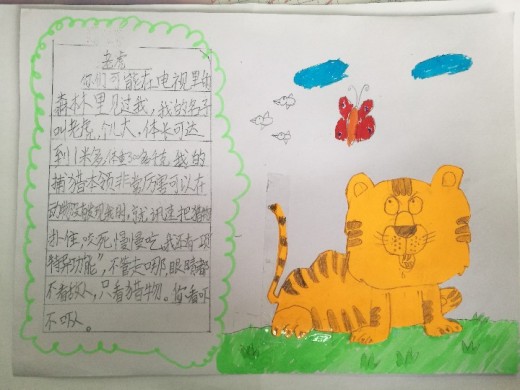 老虎
你们可能在电视里的
森林里见过我,我的名子
叫老虎,个儿大。体长可达
到1米多,体重300多千克,我的
捕猎本领非常厉害可以在
动物没发现我时,就迅速把猎物
扑住,咬死,慢慢吃。我还有一项
特异功能”,不管走哪,眼睛都
不看敌人,只看猎物。你看吓
不吓人。